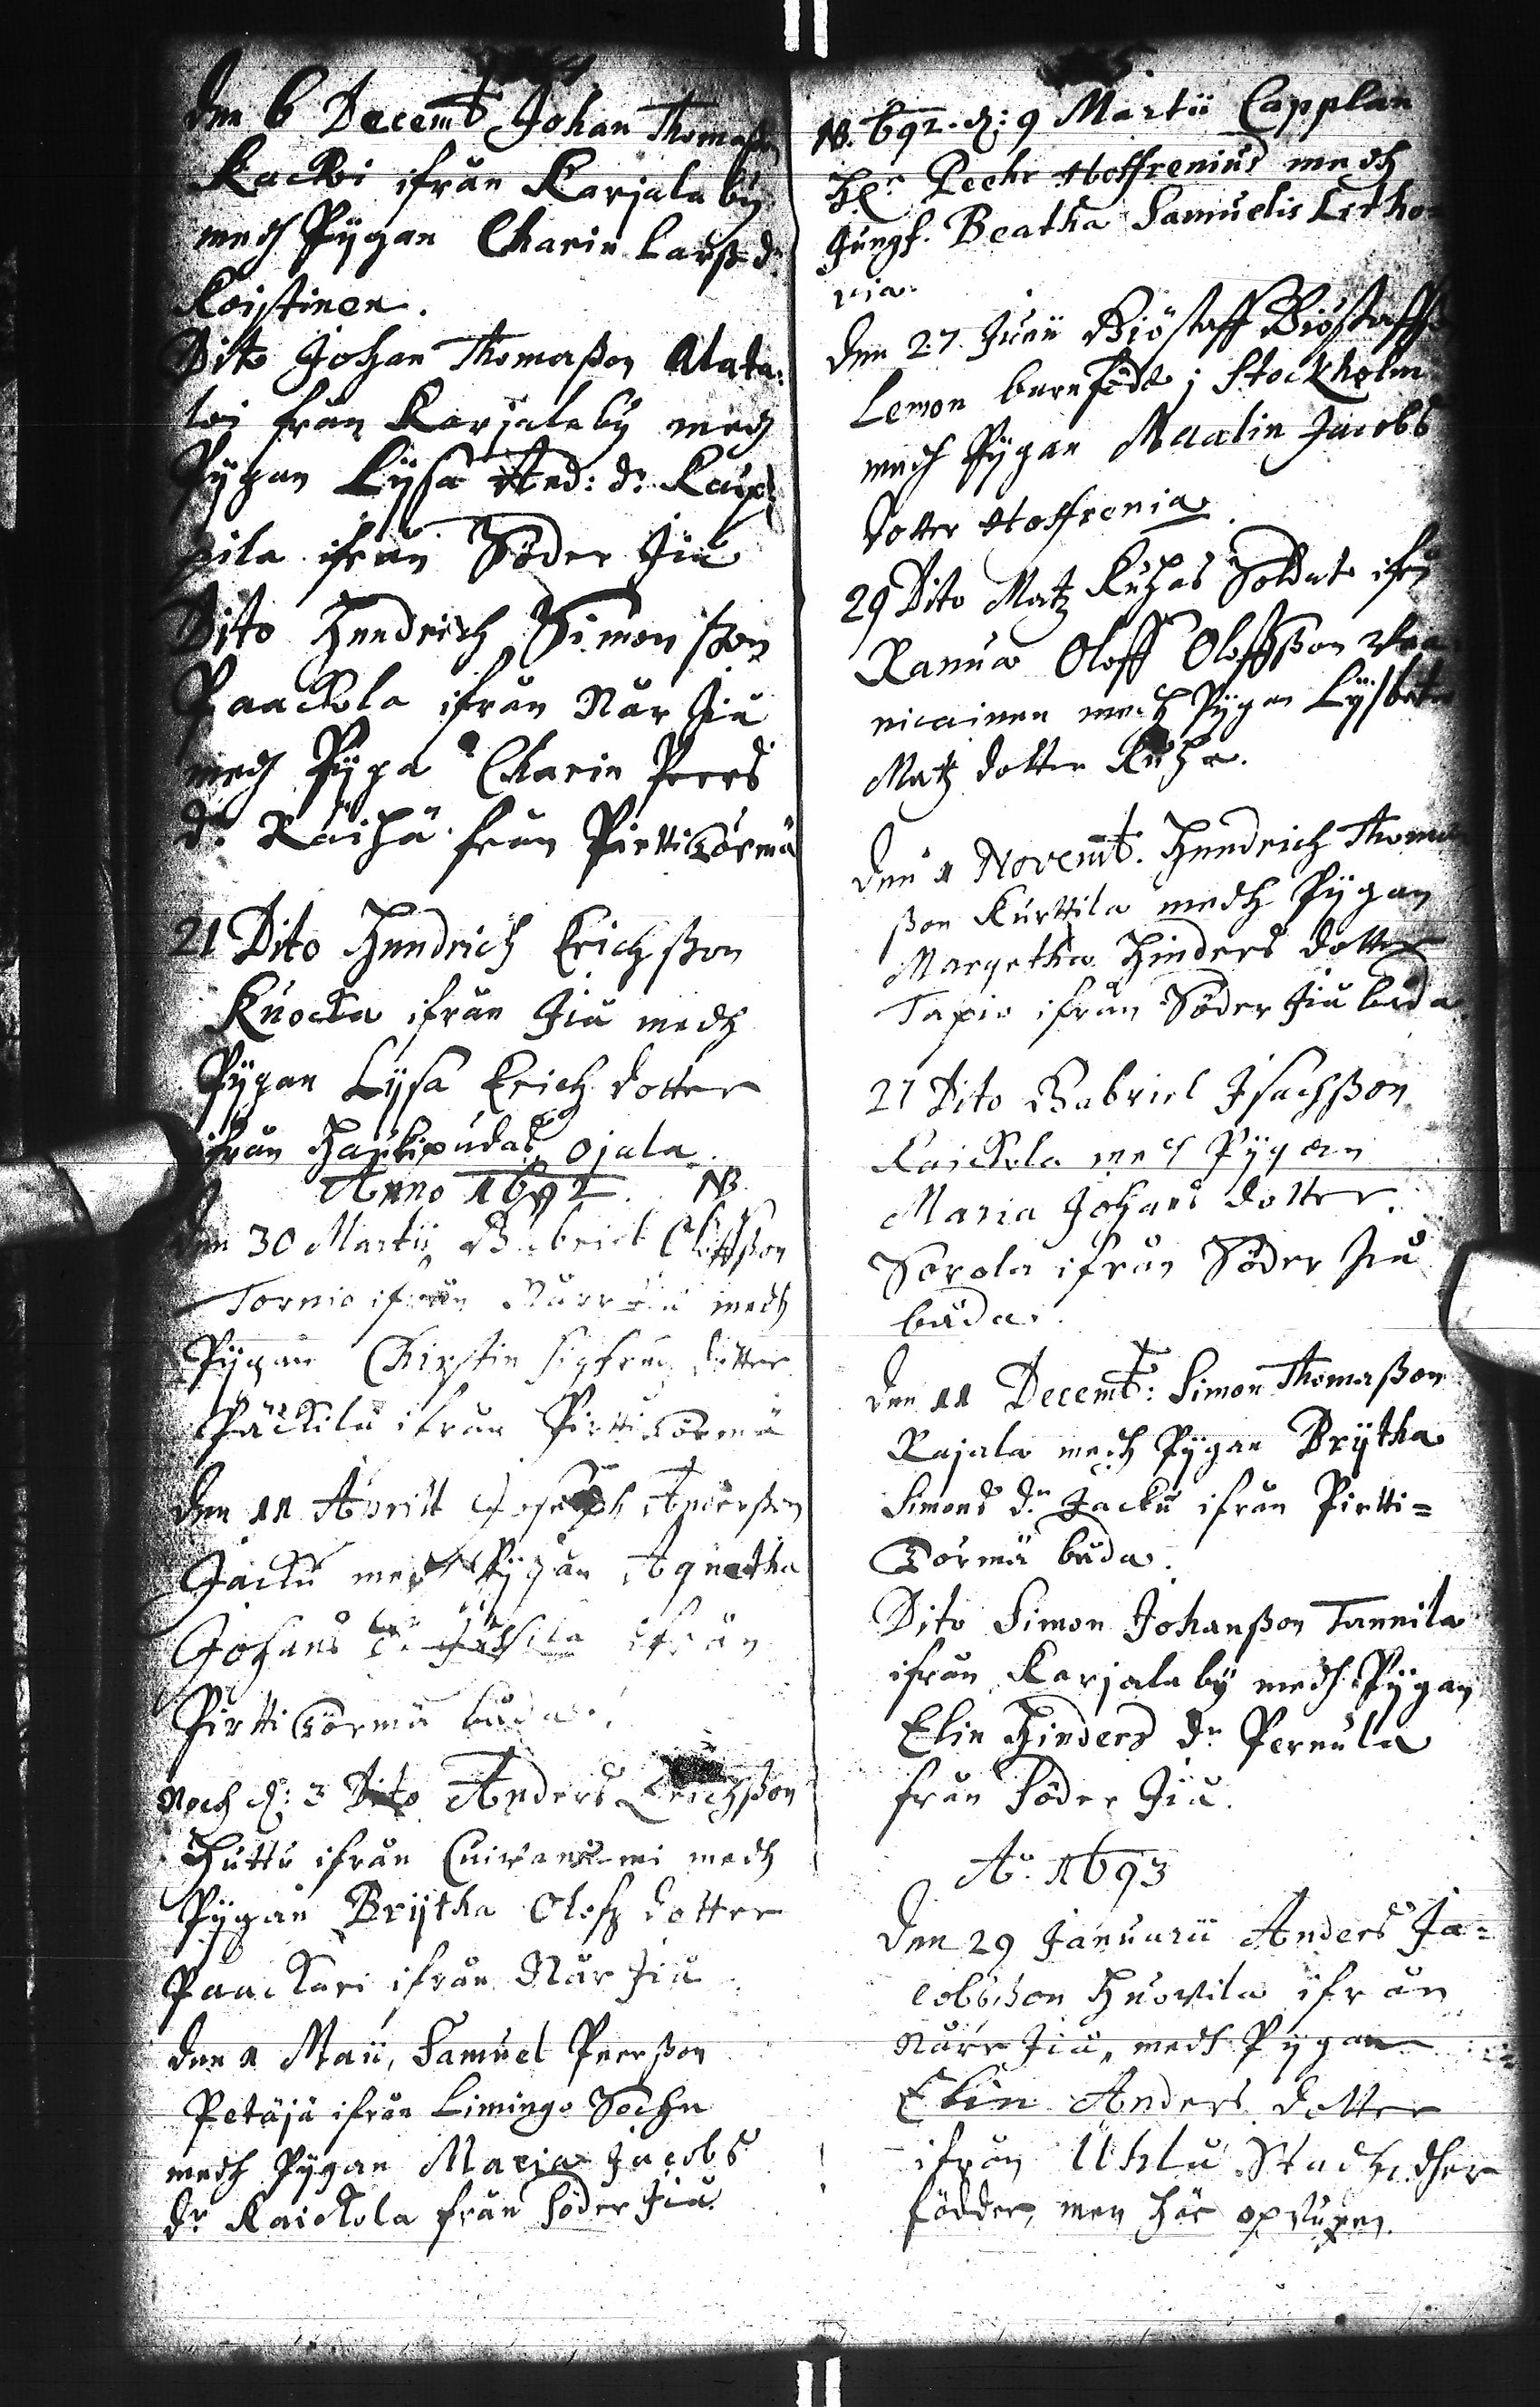 den 6 Decemb Johan Thomaßon
Kackoi ifrån Karjala by
medh Pygan Charin Larß dr
Koistinen.
Dito Johan Thomaßon Alata:
loi från Karjala by medh
Pygan Lysa And: dr Kaup:
pila ifrån Söder Jiå
Dito Hendrich Simonßon
Paackola ifrån Når Jiå
medh Pyga Charin Peers
dr Räihä från Pirttitörmä
21 Dito Hendrich Erichßon
Kuocka ifrån Jiå medh
Pygan Lysa Erich dotter
ifrån Haukipudas, Ojala.
Anno 1692. NB.
den 30 Martii Gabriel Oloffßon
Tornio ifrån Närr Jiå medh
Pygan Chirstin Sigfred dotter
Päckilä ifrån Pirttitörmä
den 11 Aprill Joseph Anderßon
Jacku medh Pygan Agnetha
Johans dr ifrån
Pirttitörmä båda.
Noch d: 3 Dito Anders Erichßon
Huttu ifrån Cuivaniemi medh
Pygan Brytha Olofz dotter
Paackari ifrån När Jiå
den 1 Maii, Samuel Peerßon
Petäjä ifrån Limingo Sochn
medh Pygan Maria Jacobs
dr Kaickola från Söder Jiå.
NB. 692. d: 9 Martii Capplan
Hr Peehr Hoffrenius medh
Jungf. Beatha Samuelis Litho-
via.
den 27 Junii Giöstaff Giöstaffß
Lemon barnfödd i Stockholm
medh Pygan Maalin Jacobs
dotter Hoffrenia.
29 Dito Matz Kuhas Soldat ifrån
Ranua Oloff Oloffßon
nicainen medh Pygan Lysbeta
Matz dotter Kuha.
den 1 Novemb. Hendrich Thoma
ßon Kurttila medh Pygan
Margetha Hinders dotter
Tapio ifrån Söder Jiå båda
27 Dito Gabriel Isachßon
Kaickola medh Pygan
Maria Johans dotter
Sorola ifrån Söder Jiå
båda.
den 11 Decemb: Simon Thomaßon
Rajala medh Pygan Brytha
Simons dr Jacku ifrån Pirtti=
törmä båda.
Dito Simon Johanßon Tannila
ifrån Karjala by medh Pygan
Elin Hinders dr Pernula
från Söder Jiå.
Ao 1693
den 29 Januarii Anders Ja=
cobßon Huovila ifrån
Närr Jiå, medh Pygan
Elin Anders dotter
ifrån Uhlu Stadh, dher
födder, men här opvuxen.